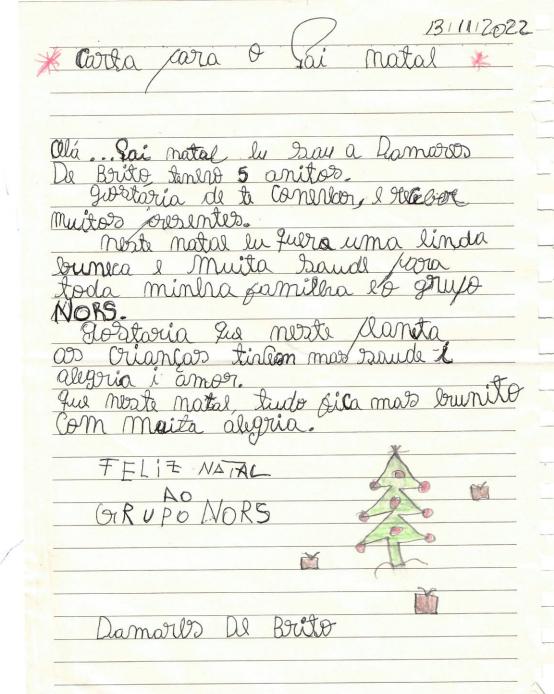 13/11/2022
Carta para o Pai natal
Olá... Pai natal eu sou a Damares
De Brito tenho 5 anitos.
gostaria de te conenher, e receber
muitos presentes.
neste natal eu quero uma linda
buneca e muita saude para
toda minha familha e o grupo
NORS.
Gostaria que neste planeta
as crianças tinhem mas saude e
alegria i amor.
que neste natal, tudo fica mas bunito
com muita alegria.
FELIZ NATAL
AO
GRUPO NORS
Damares De Brito